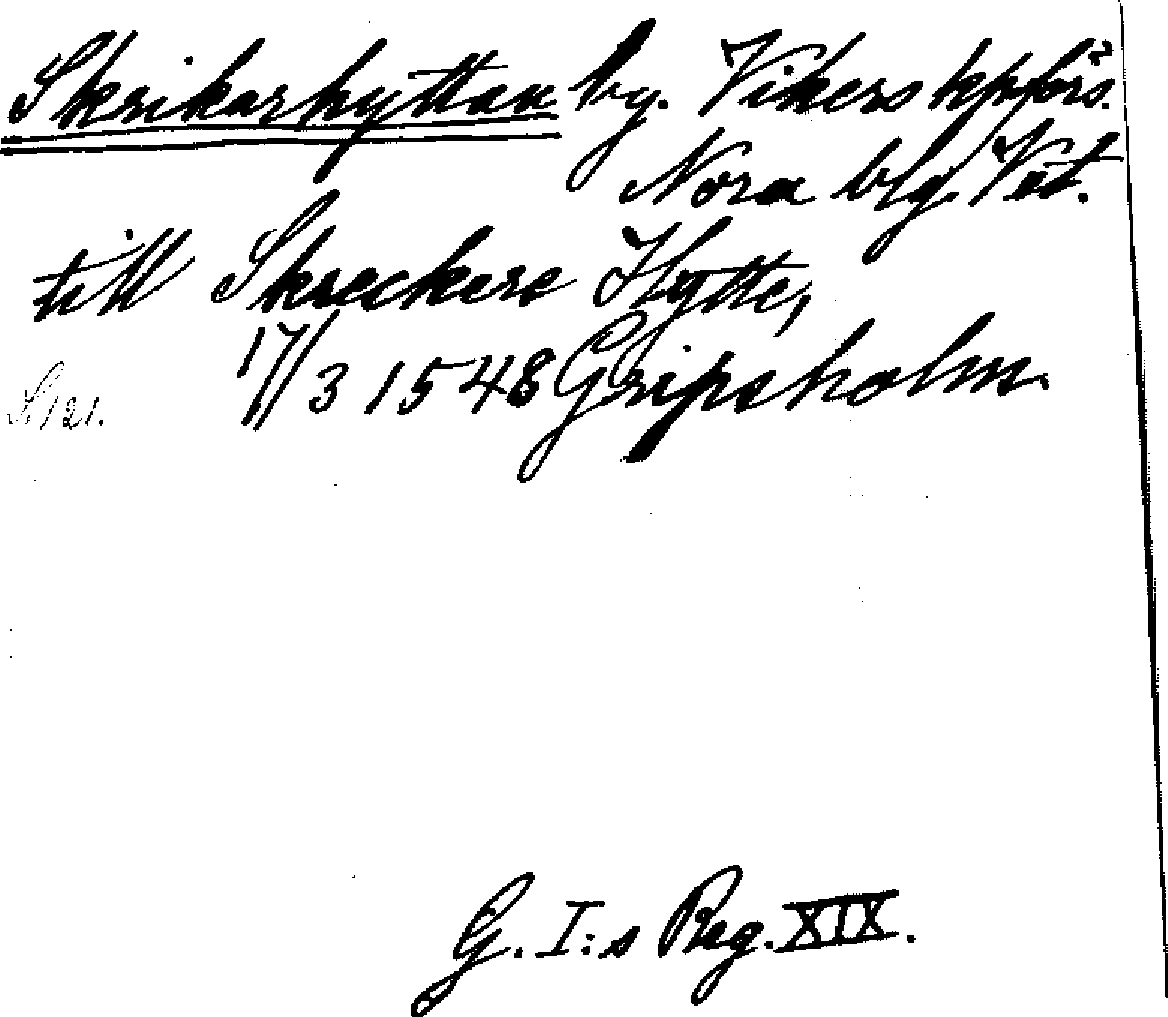 Skrikarhyttan by. Vikers kpförs.
Nora blg. Vstl.
till Skreckers Hytte,
17/3 1548 Gripsholm.
S. 121.
G. I:s Reg. XIX.